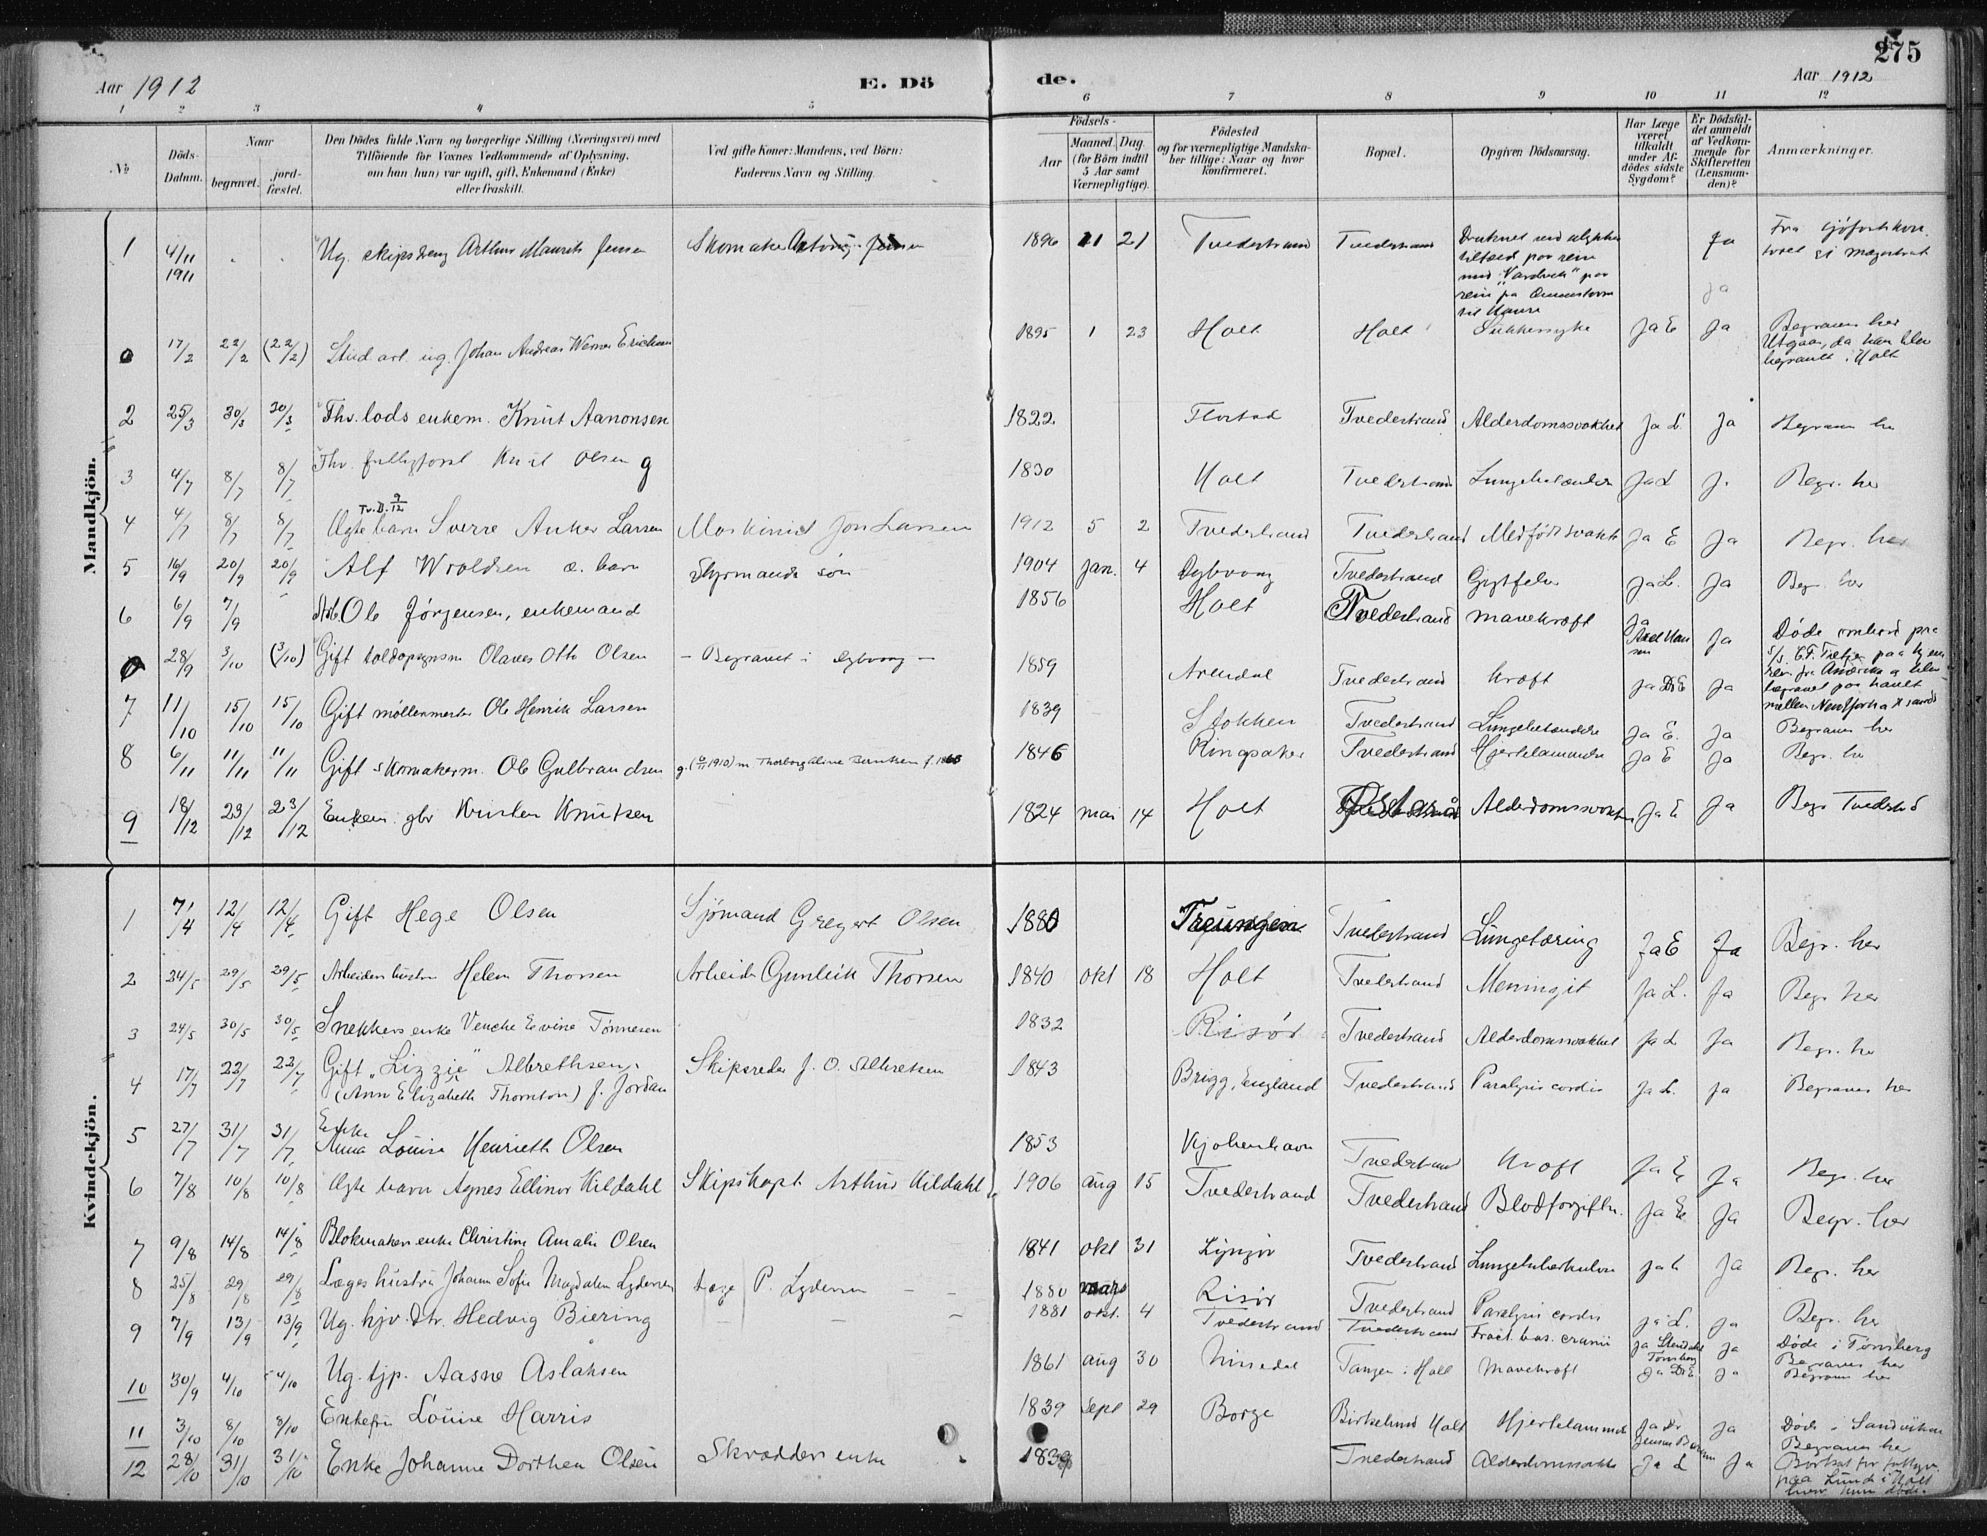 275
Aar 1912
E. Dö
de.
Aar 1912
1 2 3 4 5 6 7 8 9 10 11 12
№
Döds-Datum.
Naar
begravet.
jord-fæstet.
Den Dödes fulde Navn og borgerlige Stilling (Næringsvei) med
Tilföiende for Voxnes Vedkommende af Oplysning,
om han (hun) var ugift, gift, Enkemand (Enke)
eller fraskilt.
Ved gifte Koner: Mandens, ved Börn:
Faderens Navn og Stilling.
Födsels-
Aar
Maaned. Dag.
(for Börn indtil
5 Aar samt
Værnepligtige).
Födested
og for værnepligtige Mandska-
ber tillige: Naar og hvor
konfirmeret.
Bopæl.
Opgiven Dödsaarsag.
Har Læge
været
tilkaldt
under Af-
dödes sidste
Sygdom?
Er Dödsfal-
det anmeldt
af Vedkom-
mende for
Skifteretten
(Lensman-
den)?
Anmærkninger.
Mandkjön.
1 4/11 1911 Ug. skipsdreng Arthur Maurits Jensen Skomaker Jensen 1896 11 21 Tvedestrand Tvedestrand Druknet Ja
Ja
0 17/2 22/2 (22/2) Stud art ug. Johan Andreas Werner Ericksen 1895 1 23 Holt Holt Sukkersyke Ja E Ja Begraves her
Utgaar, da han blev
begravet i Holt
2 25/3 30/3 30/3 Fhv. lods enkem. Knut Aanonsen 1822 Flostad Tvedestrand Alderdomssvakhet Ja L. Ja Begraves her
3 4/7 8/7 8/7 Fhv. Knut Olsen g 1830 Holt Tvedestrand Lungebetændelse Ja L J. Begr. her
Tv.D. 9/12
4 4/7 8/7 8/7 Ægte barn Sverre Anker Larsen Maskinist Jon Larsen 1912 5 2 Tvedestrand Tvedestrand Medfødt svakh Ja E Ja Begr. her
5 16/9 20/9 20/9 Alf Wroldsen æ. barn Styrmands søn 1904 Jan. 4 Dybvaag Tvedestrand Gigtfeber Ja L. Ja Begr. her
6 6/9 7/9 Ole Jørgensen, enkemand 1856 Holt Tvedestrand mavekræft Ja
Ja Døde ombord paa
S/S. C.F. Tietgen paa hjem
reise fra Amerika og blev
begravet paa havet
mellem New York og Kr.sand
0 28/9 3/10 (3/10) Gift toldopsynsm Olaves Otto Olsen – Begravet i Dybvaag – 1859 Arendal Tvedestrand kræft Ja Dr E Ja
7 11/10 15/10 15/10 Gift møllermester Ole Henrik Larsen 1839 Stokken Tvedestrand Lungebetændelse Ja E. Ja Begraves her
8 6/11 11/11 11/11 Gift skomakerm. Ole Gulbrandsen 1846 Ringsaker Tvedestrand Hjertelammelse Ja E Ja Begr. her
9 18/12 23/12 23/12 Enkem. gbr Kristen Knutsen 1824 mai 14 Holt Alderdomssvakhet Ja E Ja Begr Tvedestrand
Kvindekjön.
1 7/4 12/4 12/4 Gift Hege Olsen Sjømand Gregert Olsen 1880 Treungen Tvedestrand Lungetæring Ja E Ja Begr. her
2 24/5 29/5 29/5 Arbeiders hustru Helene Thorsen Arbeider Gunleik Thorsen 1840 okt 18 Holt Tvedestrand Meningit Ja L. Ja Begr her
3 24/5 30/5 30/5 Snekkers enke Venche Tønnesen 1832 Risør Tvedestrand Alderdomssvakhet Ja L Ja Begr. her
4 17/7 22/7 22/7 Gift „Lizzie“ Albrethsen
(Ann Elizabeth Thornton) f. Jordan Skipsreder J. O. Albretsen 1843 Brigg, England Tvedestrand Paralysis cordis Ja L. Ja Begraves her
5 27/7 31/7 31/7 Enke
Anna Louise Henriette Olsen 1853 Kjøbenhavn Tvedestrand kræft Ja E Ja Begr. her
6 7/8 10/8 10/8 Ægte barn Agnes Ellinor Kildahl Skipskapt. Arthur Kildahl 1906 aug 15 Tvedestrand Tvedestrand Blodforgiftn. Ja E Ja Begr. her
7 9/8 14/8 14/8 Blokmakers enke Christine Amalie Olsen 1841 okt 31 Lyngør Tvedestrand Lungetuberkulose Ja L Ja Begr. her
8 25/8 29/8 29/8 Læges hustru Johanne Sofie Magdalene Lydersen Læge P. Lydersen 1880 mars Risør Tvedestrand Paralysis cordis Ja L. Ja Begr. her
9 7/9 13/9 13/9 Ug. hjv. Dtr. Hedvig Biering 1881 okt. 4 Tvedestrand Tvedestrand Fract. bas. cranii Ja
Tønsberg Ja Døde i Tønsberg
Begraves her
10 30/9 4/10 4/10 Ug. tjp. Aasne Aslaksen 1861 aug 30 Nissedal Tangen i Holt Mavekræft Ja Dr E Ja Begraves her
11 3/10 8/10 8/10 Enkefru Louise Harris 1839 Sept 29 Borge Birkelund Holt Hjertelammelse Ja Dr Ja Døde i Sandviken
Begraves her
12 28/10 31/10 31/10 Enke Johanne Dorthea Olsen Skrædders enke 1839 Tvedestrand Alderdomssvakh Ja L Ja Bortsat for
paa Lunde i Holt
hvor hun døde.